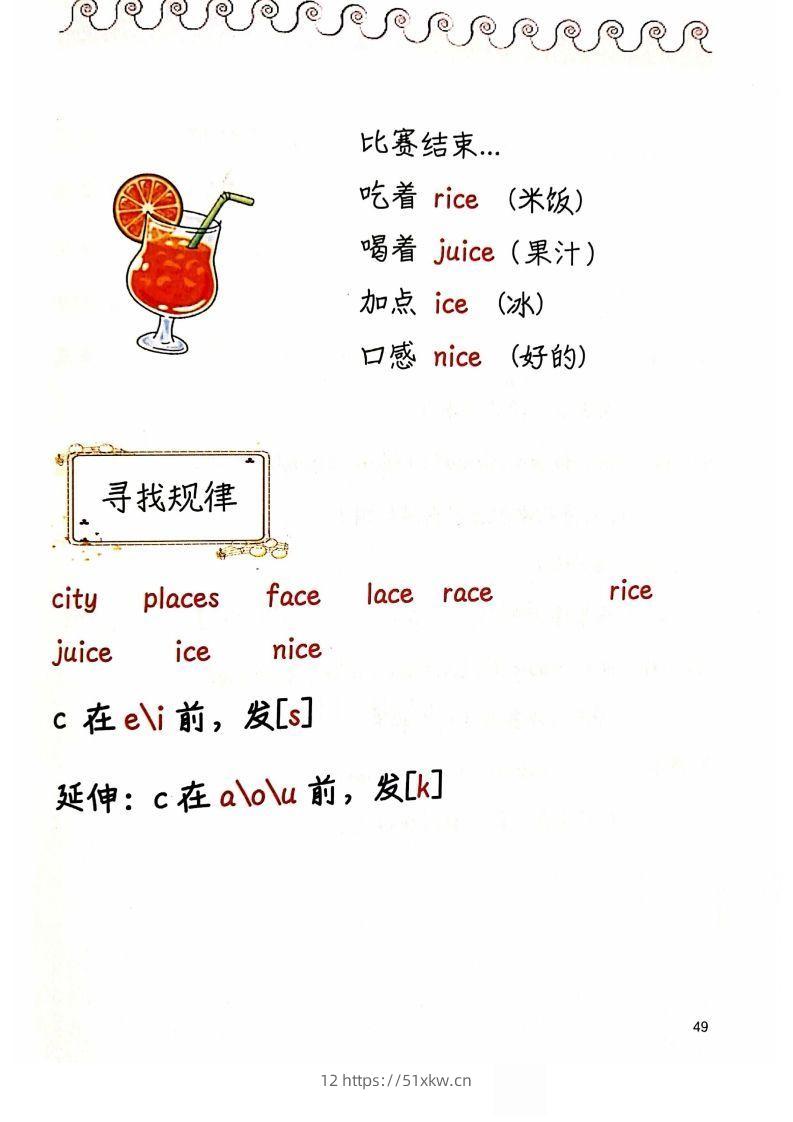 比赛结束...
吃着 rice （米饭）
喝着 juice（果汁）
加点 ice （冰）
口感 nice （好的）
寻找规律
city places face lace race rice
juice ice nice
c 在 e\i 前，发[s]
延伸：c 在 a\o\u 前，发[k]
49
12 https://51xkw.cn